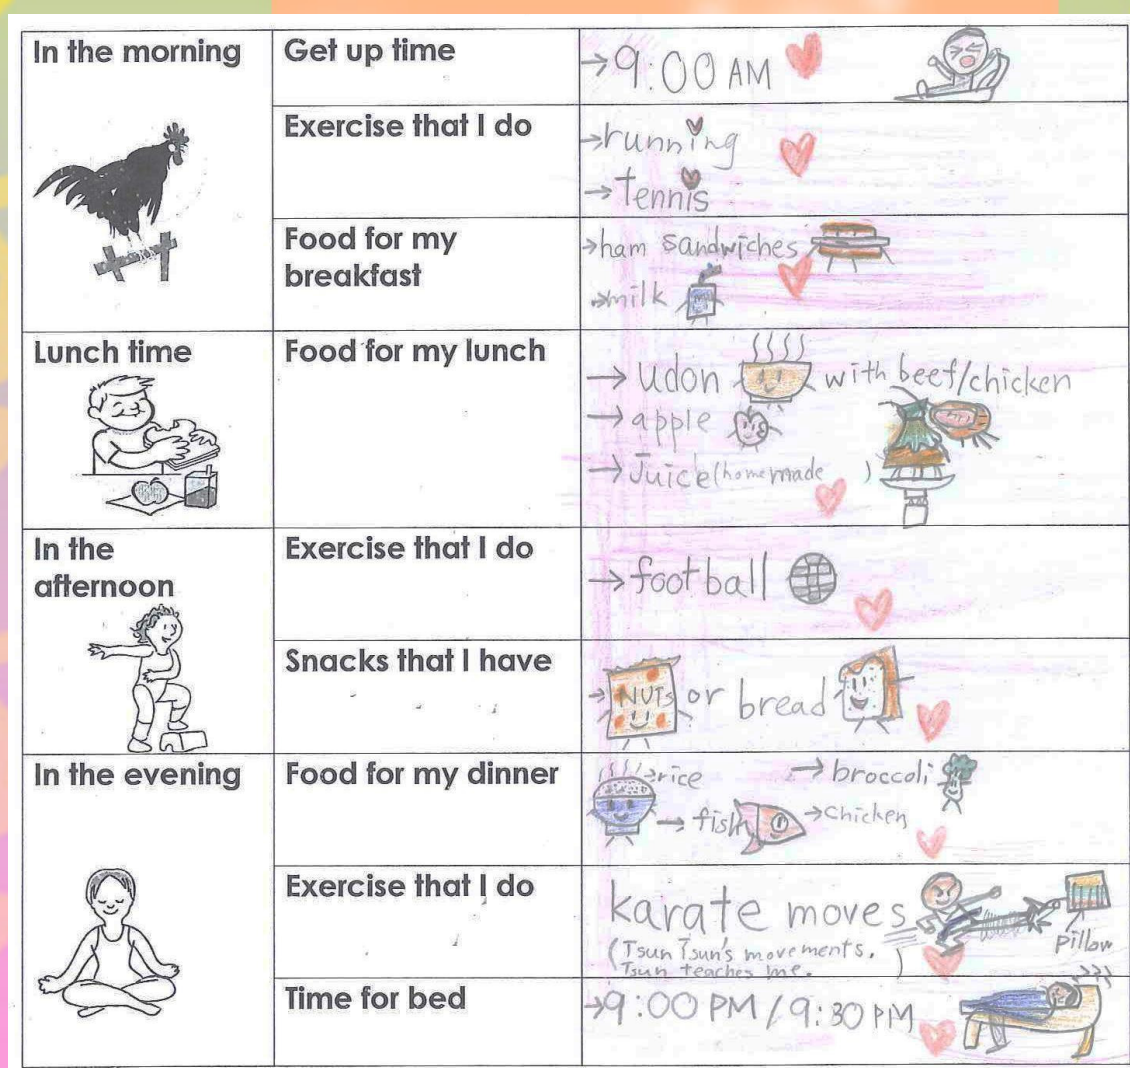 In the morning
Get up time
→9:00 AM
Exercise that I do
→running
→tennis
Food for my
breakfast
→ham sandwiches
→milk
Lunch time
Food for my lunch
→ udon with beef/chicken
→ apple
→ Juice (homemade )
In the
afternoon
Exercise that I do
→ football
Snacks that I have
→ NUTS or bread
In the evening
Food for my dinner
→rice → broccoli
→ fish →chicken
Exercise that I do
karate moves
pillow
(Tsun Tsun's movements.
Tsun teaches me. )
Time for bed
→9:00 PM / 9:30 PM